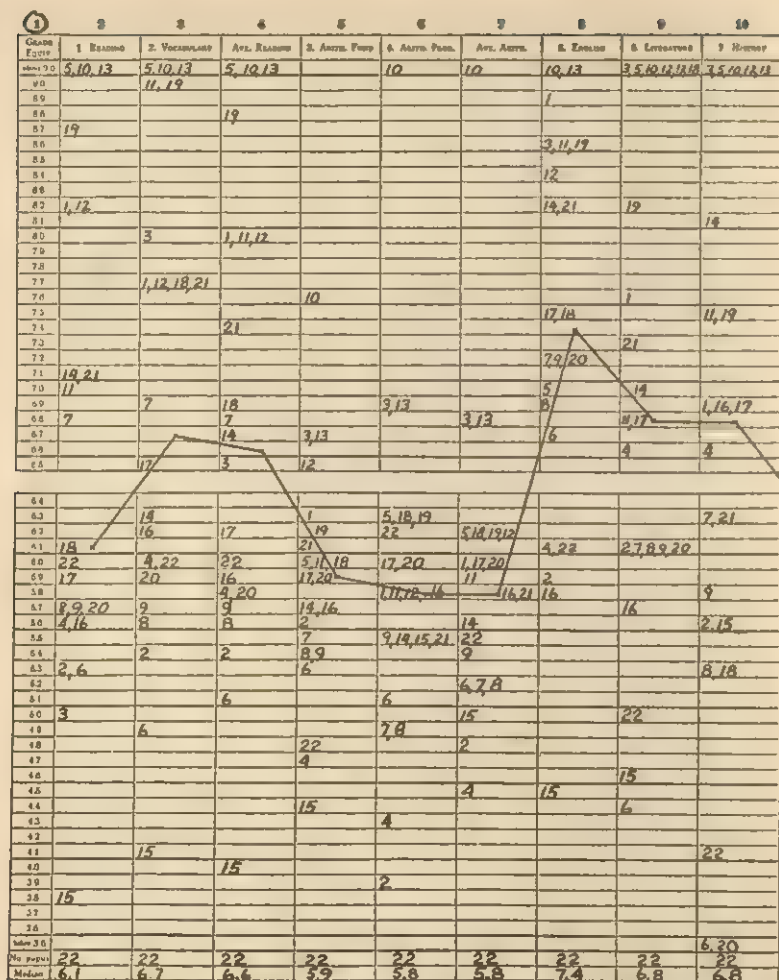 1 2 3 4 5 6 7 8 9 10
GRADE EQUIV. 1 READING 2. VOCABULARY AVE. READING 3. ARITH. FUND 4. ARITH. PROB. AVE. ARITH. 5. ENGLISH 6 LITERATURE 7 HISTORY
5,10,13 5,10,13 5,10,13 10 10 10,13 3,5,10,12,13,18 3,5,10,12,13
9.0 11,19
8.9 1
8.8 19
8.7 19
8.6 3,11,19
8.5
8.4 12
8.3
8.2 1,12 14,21 19
8.1 14
8.0 3 1,11,12
7.9
7.8
7.7 1,12,18,21
7.6 10 1
7.5 17,18 11,19
7.4 21
7.3 21
7.2 7,9,20
7.1 14,21
7.0 11 5 14
6.9 7 18 3,13 8 1,16,17
6.8 7 7 3,13 11,17
6.7 14 3,13 6
6.6 4 4
6.5 17 3 12
6.4
6.3 14 1 5,18,19 7,21
6.2 16 17 19 22 5,18,19,12
6.1 18 21 4,22 2,7,8,9,20
6.0 22 4,22 22 5,11,18 17,20 1,17,20
5.9 17 20 16 17,20 11 2
5.8 4,20 1,11,12,16 16,21 16 9
5.7 8,9,20 9 9 14,16 16
5.6 4,16 8 8 2 14 2,15
5.5 7 9,14,15,21 22
5.4 2 2 8,9 9
5.3 2,6 6 8,18
5.2 6,7,8
5.1 6 6
5.0 3 15 22
4.9 6 7,8
4.8 22 2
4.7 4
4.6 15
4.5 4 15
4.4 15 6
4.3 4
4.2
4.1 15 22
4.0 15
3.9 2
3.8 15
3.7
3.6
Below 3.6 6,20
No. pupils 22 22 22 22 22 22 22 22 22
Median 6.1 6.7 6.6 5.9 5.8 5.8 7.4 6.8 6.8